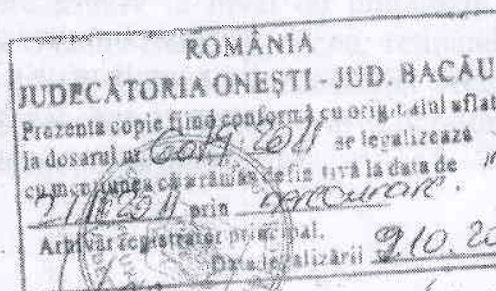 ROMÂNIA
JUDECĂTORIA ONEȘTI - JUD. BACĂU
Prezenta copie fiind conformă cu originalul aflat
la dosarul nr. 2011 se legalizează
cu mențiunea că a rămas definitivă la data de
2011 prin
Arhivar registrator principal.
Data legalizării 9.10. 20